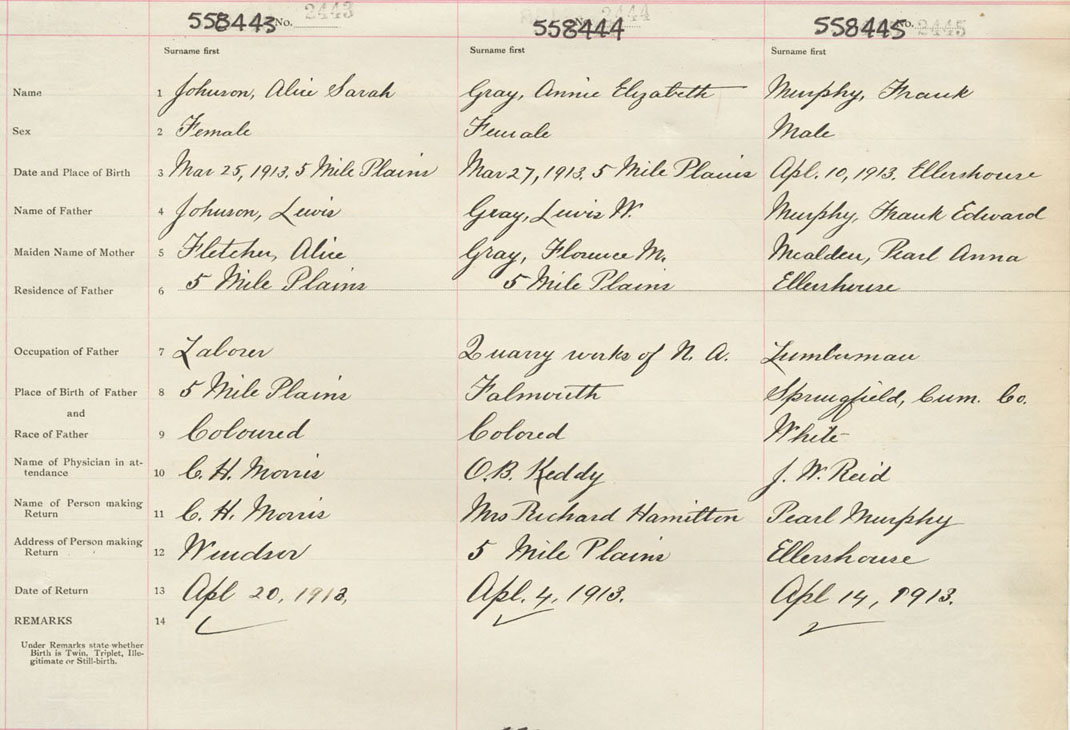 558443 No. 2443 558444 No. 2444 558445 No. 2445
Surname first Surname first Surname first
Name 1 Johnson, Alice Sarah Gray, Annie Elizabeth Murphy, Frank
Sex 2 Female Female Male
Date and Place of Birth 3 Mar 25, 1913. 5 Mile Plains Mar 27, 1913. 5 Mile Plains Apl. 10, 1913. Ellershouse
Name of Father 4 Johnson, Lewis Gray, Lewis W. Murphy, Frank Edward
Maiden Name of Mother 5 Fletcher, Alice Gray, Florence M. Mcalden, Pearl Anna
Residence of Father 6 5 Mile Plains 5 Mile Plains Ellershouse
Occupation of Father 7 Laborer Quarry works of N. A. Lumberman
Place of Birth of Father 8 5 Mile Plains Falmouth Springfield, Cum. Co.
and
Race of Father 9 Coloured Colored White
Name of Physician in at-
tendance 10 C. H. Morris O. B. Keddy J. W. Reid
Name of Person making
Return 11 C. H. Morris Mrs Richard Hamilton Pearl Murphy
Address of Person making
Return 12 Windsor 5 Mile Plains Ellershouse
Date of Return 13 Apl 20, 1913, Apl. 4, 1913. Apl 14, 1913.
REMARKS 14
Under Remarks state whether
Birth is Twin, Triplet, Ille-
gitimate or Still-birth.